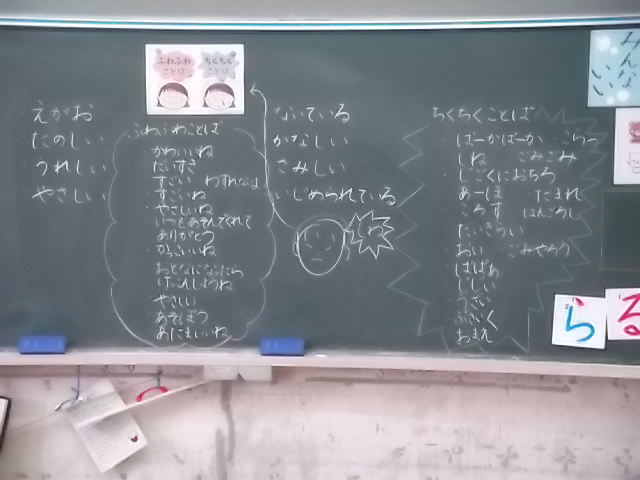 ふわふわ
ことば
ちくちく
ことば
みんな
いい
えがお
たのしい
うれしい
やさしい
ふわふわことば
かわいいね
だいすき
すごい わすれなよ
すごいね
やさしいね
いっしょあそんでくれて
ありがとう
かっこいいね
おとなになったら
けっこんしようね
やさしい
あそぼう
あたまいいね
ないている
かなしい
さみしい
いじめられている
ちくちくことば
ばーかばーか
しね ごみごみ
じごくにおちろ
あーほ だまれ
ころす
だいきらい
おい ごみやろう
ばばあ
じじい
うざい
ぶさいく
おまえ
ら
る